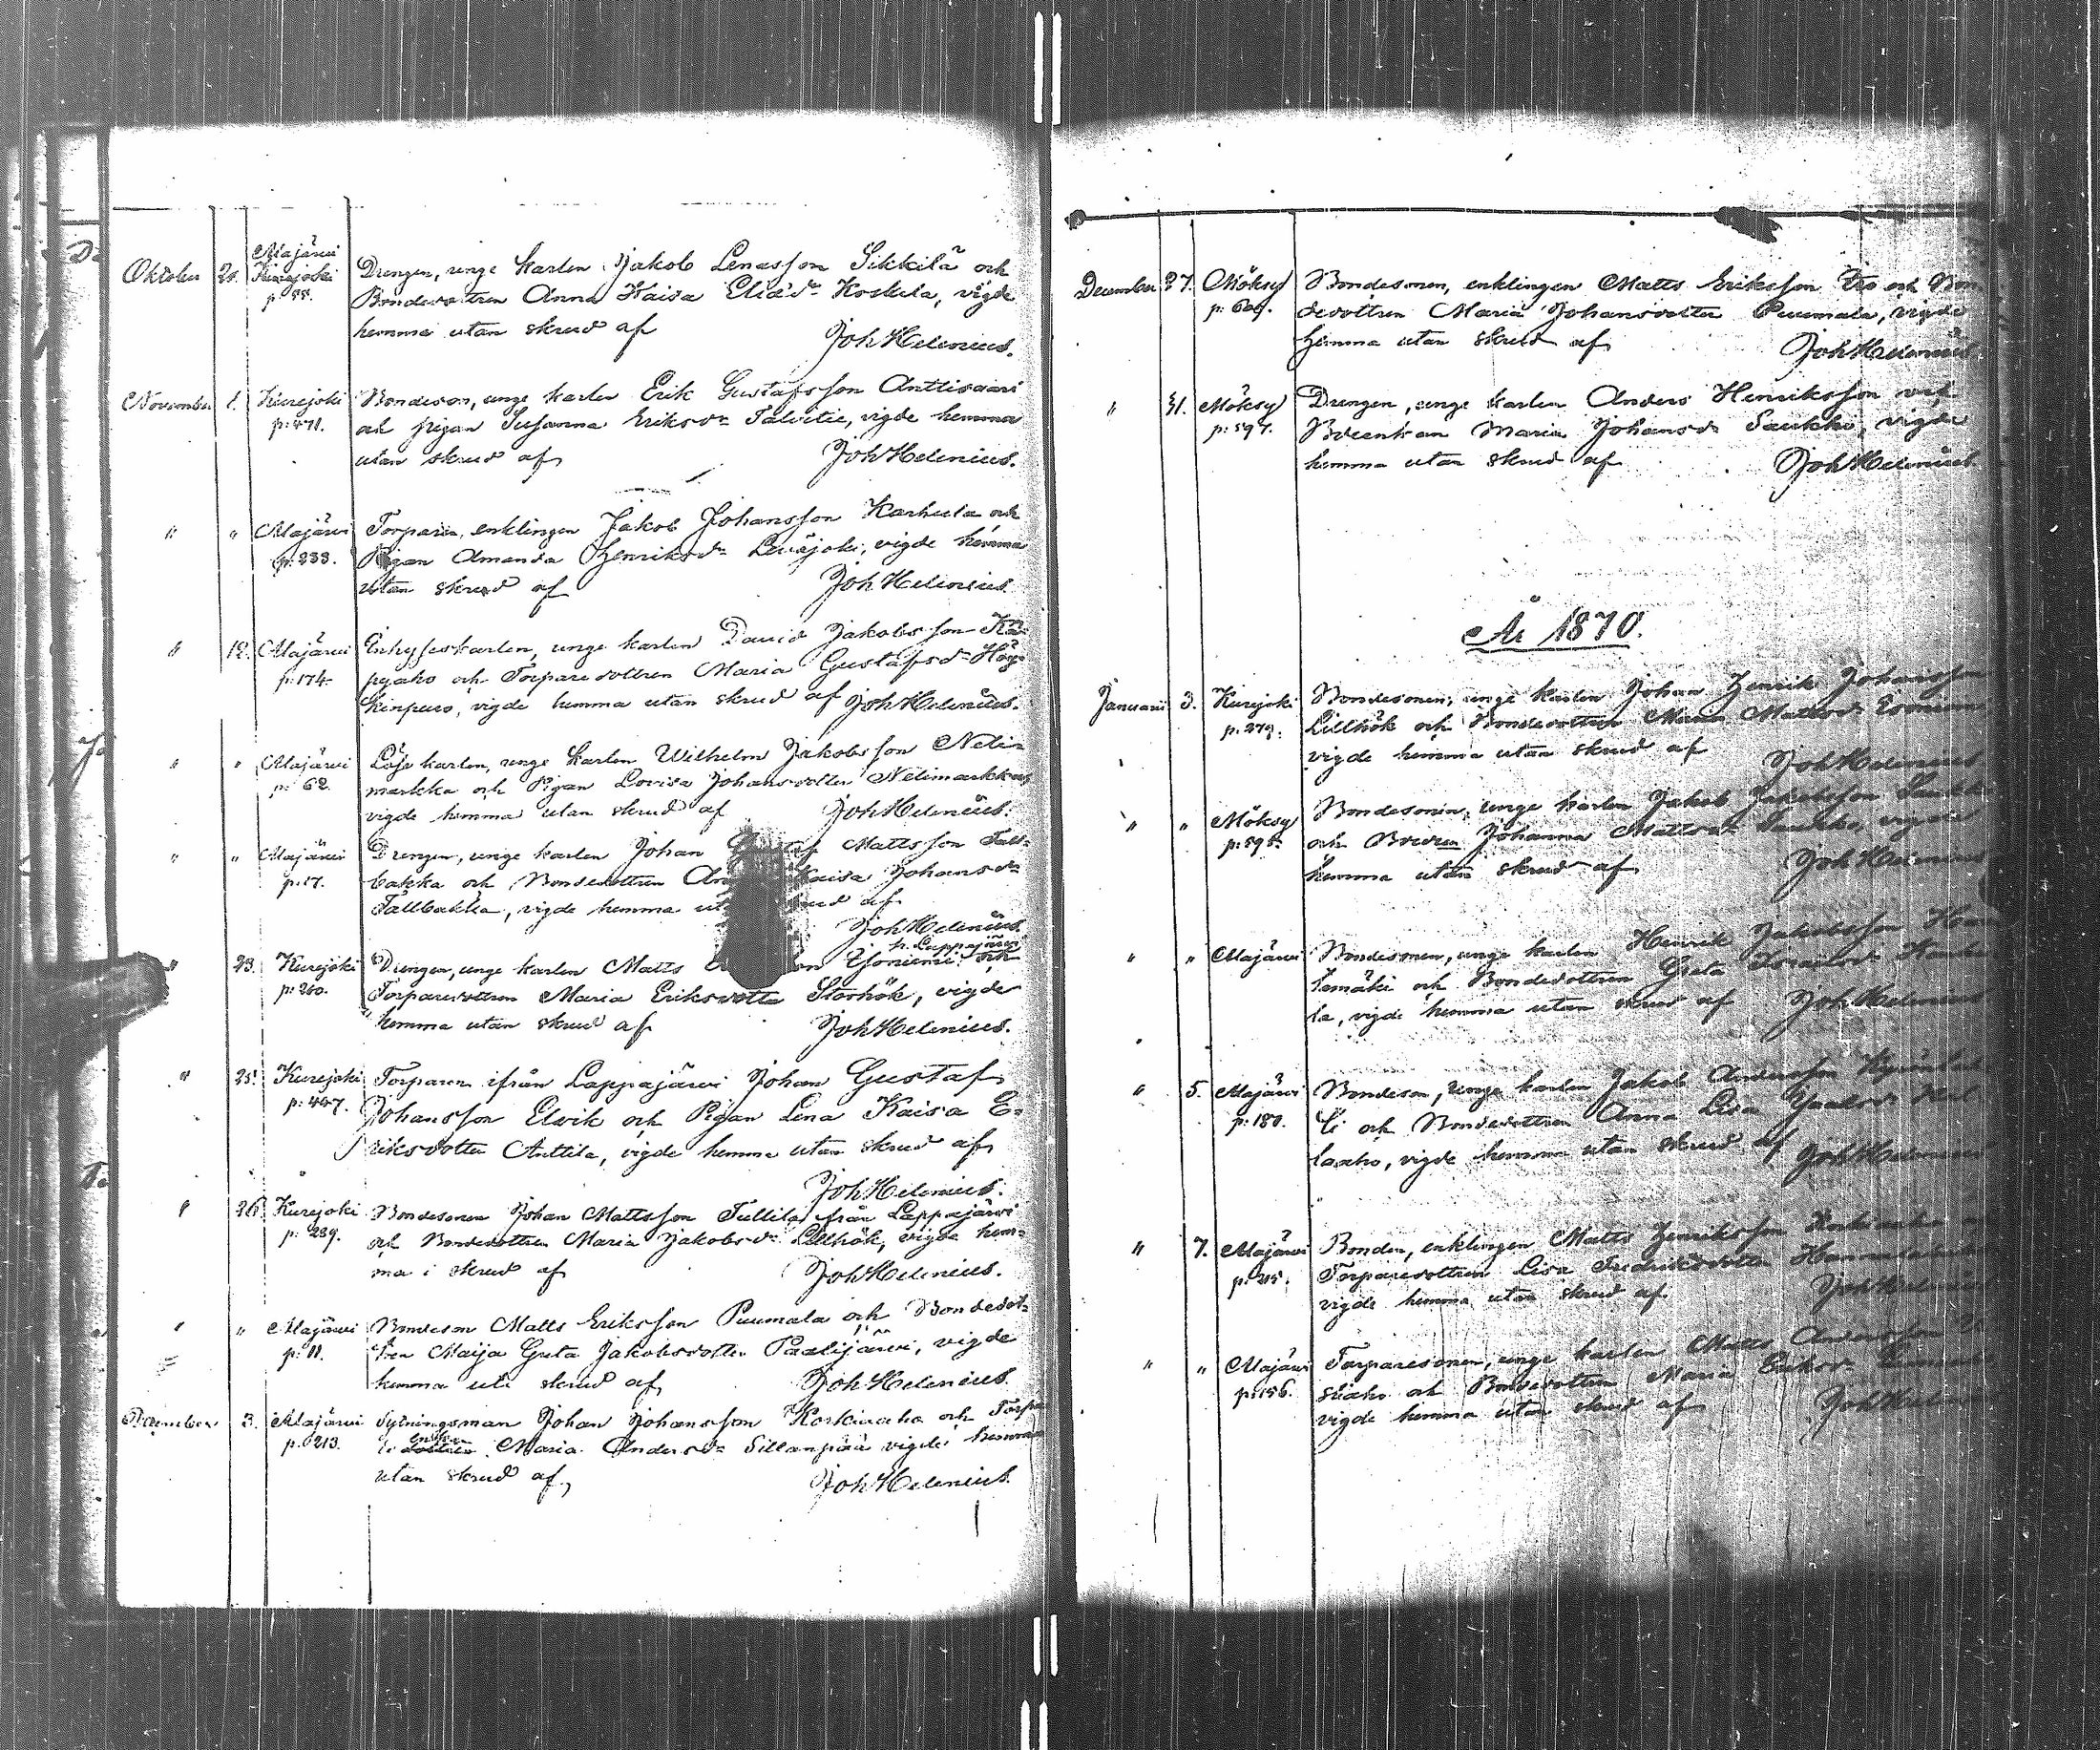 Oktober 20. Alajärvi Kurejoki p. 88. Drengen, unge karlen Jakob Lenasson Sikkilä och
Bondedottren Anna Kaisa Eliæ dr Koskela, vigde
hemma utan skrud af Joh Helenius.
November 1. Kurejoki p. 471. Bondeson, unge karlen Erik Gustafsson Anttisaari
och pigan Susanna Eriksdr Talvitie, vigde hemma
utan skrud af Joh Helenius.
" " Alajärvi p. 233. Torparen, enklingen Jakob Johansson Karhula och
Pigan Amanda Henriksdr Levijoki, vigde hemma
utan skrud af Joh Helenius.
" 12. Alajärvi p. 174. Inhyseskarlen, unge karlen David Jakobsson
pyaho och Torparedottren Maria Gustafsdr Höy-
kinpuro, vigde hemma utan skrud af Joh Helenius.
" " Alajärvi p. 62. Löskarlen, unge karlen Wilhelm Jakobsson Neli-
markka och Pigan Lovisa Johansdotter Nelimarkka
vigde hemma utan skrud af Joh Helenius.
" " Alajärvi p. 17. Drengen, unge karlen Johan Mattsson Tall-
bakka och Bondedottren Kaisa Johansdr
Tallbakka, vigde hemma af
Joh Helenius.
" 23. Kurejoki p. 260. Drengen, unge karlen Matts fr. Lappajärvi och
Torparedottren Maria Eriksdotter Storhök, vigde
hemma utan skrud af Joh Helenius.
" 25. Kurejoki p. 447. Torparen ifrån Lappajärvi Johan Gustaf
Johansson Elvik och Pigan Lena Kaisa E-
riksdotter Anttila, vigde hemma utan skrud af
Joh Helenius.
" 26 Kurejoki p. 239. Bondesonen Johan Mattsson Tullila från Lappajärvi
och Bondedottren Maria Jakobsdr Lillhök, vigde hem-
ma i skrud af Joh Helenius.
" " Alajärvi p. 11. Bondeson Matts Eriksson Puumala och Bondedot-
tren Maija Greta Jakobsdotter Paalijärvi, vigde
hemma uti skrud af Joh Helenius.
December 3. Alajärvi p. 213. Sytningsman Johan Johansson Koskiaho och
enkan Maria Andersdr Sillanpää vigde hemma
utan skrud af Joh Helenius.
December 27. Möksy p. 609. Bondesonen, enklingen Matts Eriksson och Bon
dedottren Maria Johansdotter Puumala, vigde
hemma utan skrud af Joh Helenius.
" 31. Möksy p. 597. Drengen, unge karlen Anders Henriksson och
Maria Johansdr Saukko, vigde
hemma utan skrud af Joh Helenius.
År 1870.
Januari 3. Kurejoki p. 279. Bondesonen, unge karlen Johan Henrik Johansson
Lillhök och Bondedottren Maria Mattsdr
vigde hemma utan skrud af Joh Helenius
" " Möksy p. 595. Bondesonen, unge karlen Jakob Jakobsson
och Johanna Mattsdr Saukko, vigde
hemma utan skrud af Joh Helenius
" " Alajärvi Bondesonen, unge karlen Henrik Jakobsson
och Bondedottren Greta
la, vigde hemma utan skrud af Joh Helenius
" 5. Alajärvi p. 180. Bondeson, unge karlen Jakob Andersson
och Bondedottren Anna Lisa
vigde hemma utan skrud af Joh Helenius
" 7. Alajärvi p. 215. Bonden, enklingen Matts Henriksson
Torparedottren Lisa Fredriksdotter
vigde hemma utan skrud af Joh Helenius
" " Alajärvi p. 156. Torparesonen, unge karlen Matts Andersson
och Bondedottren Maria
vigde hemma utan skrud af Joh Helenius